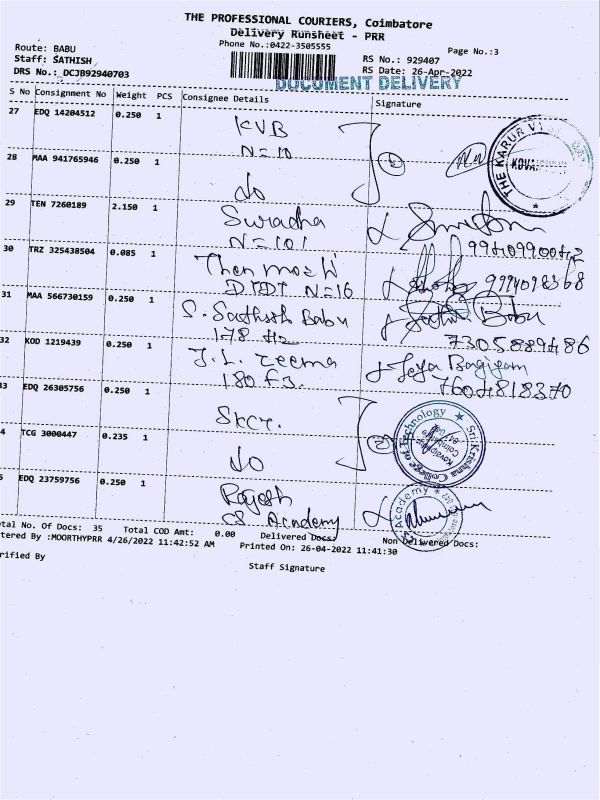 THE PROFESSIONAL COURIERS, Coimbatore
Delivery Runsheet - PRR
Phone No.:0422-3505555
Page No.:3
Route: BABU
Staff: SATHISH
DRS No.: DCJB92940703
RS No.: 929407
RS Date: 26-Apr-2022
DOCUMENT DELIVERY
S No Consignment No Weight PCS Consignee Details Signature
27 EDQ 14204512 0.250 1 KVB
N=10
THE KARUR
28 MAA 941765946 0.250 1 do
29 TEN 7260189 2.150 1
N=101 9940990042
30 TRZ 325438504 0.085 1
N=16
31 MAA 566730159 0.250 1 S. Sathish Babu Babu
178 7305889486
32 KOD 1219439 0.250 1 J.L. Leema Jeya
180 7604818370
33 EDQ 26305756 0.250 1 SKCT.
Sri Krishna College of Technology
Coimbatore
34 TCG 3000447 0.235 1 do
35 EDQ 23759756 0.250 1 Rajesh
CS Academy
Academy
Total No. Of Docs: 35 Total COD Amt: 0.00 Delivered Docs: Non Delivered Docs:
tered By :MOORTHYPRR 4/26/2022 11:42:52 AM Printed On: 26-04-2022 11:41:30
rified By Staff Signature